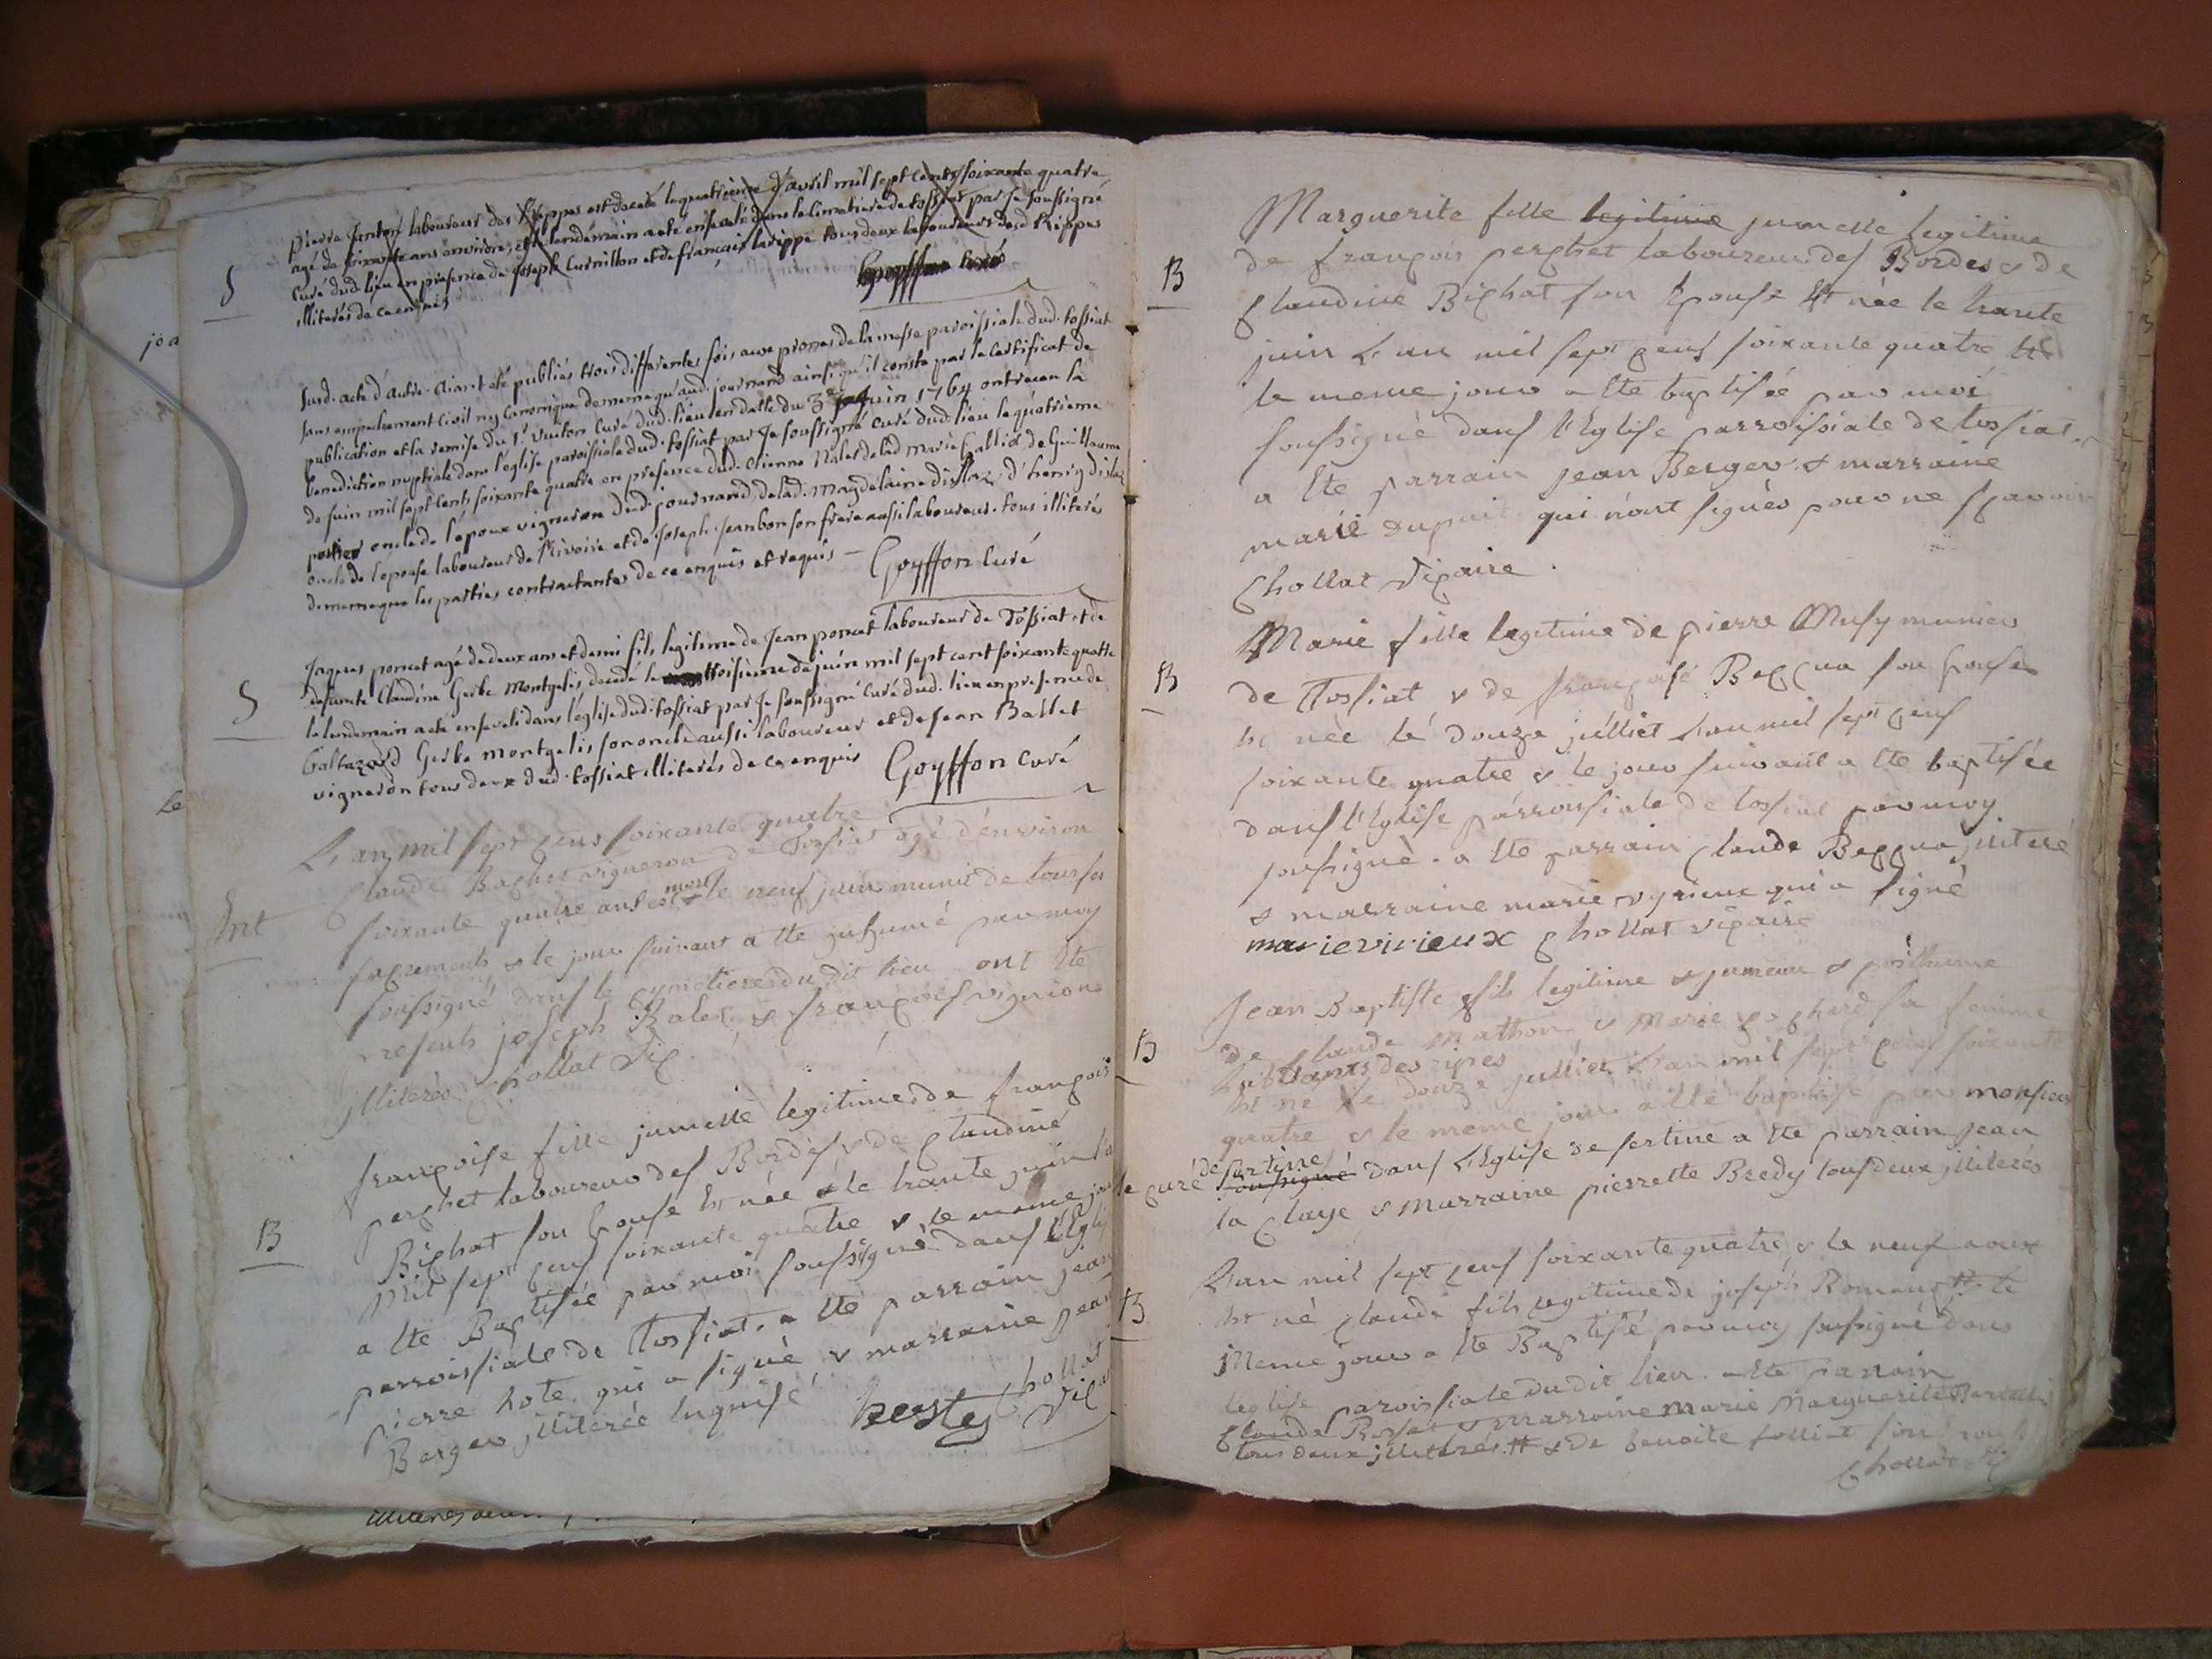 pierre janton laboureur des Rippes est decedé le quatrieme d'avril mil sept cents soixante quatre
agé de soixante ans environ, et le lendemain a eté enseveli dans le cimetiere de tossiat par Je soussigné
Curé dud. lieu en presence de Joseph Curnillon et de françois larippe tous deux laboureurs desd Rippes
illiterés de ce enquis
Goyffon curé
S
publiés trois differentes fois aux prones de la messe paroissiale dud. tossiat
sans empechement Civil ny Canonique de meme qu'aud. journand ainsi qu'il conste par le certificat de
publication et la remise du Sr vuiton Curé dud. lieu en datte du 3e juin 1764 ont receu la
benediction nuptiale dans l'eglise paroissiale dud. tossiat par Je soussigné curé dud. lieu le quatrieme
de juin mil sept cents soixante quatre en presence dud. etienne Nalet de lad marie de Guillaume
oncle de l'epoux vigneron dud. journand de lad. Magdelaine d'henry
oncle de l'epouse laboureur de Rivoire et de Joseph Jeanbon son frere aussi laboureur. tous illiterés
de meme que les parties contractantes de ce enquis et requis – Goyffon Curé
Jaques poncet agé de deux ans et demi fils legitime de Jean poncet laboureur de Tossiat et de
defunte Claudine Gerbe Montgelis, decedé le troisieme de juin mil sept cent soixante quatre
S
le lendemain a eté enseveli dans l'eglise dud. tossiat par Je soussigné Curé dud. lieu en presence de
baltazard Gerbe montgelis son oncle aussi laboureur et de Jean Ballet
vigneron tous deux dud. tossiat illiterés de ce enquis Goyffon Curé
L'an mil sept cens soixante quatre
Claude Bachet vigneron de Tossiat agé d'environ
Int
soixante quatre ans est mort le neuf juin munit de tous ses
sacrements & le jour suivant a ete inhumé par moy
soussigné dans le cymetiere du dit lieu ont ete
presents joseph Balet & françois vignion
jlliterés Chollat vic.
françoise fille jumelle legitime de françois
perchet laboureur des Bordes & de Claudine
B
Bichat son Epouse Et née le trante juin l'a
mil sept cens soixante quatre & le meme jou
a ete Baptisée par moi soussigné dans l'Egli
parroissiale de Tossiat. a ete parrain jean
pierre hote qui a signé & marraine jean
Berger jlliterée Enquise
hoste Chollat
vic
Marguerite fille legitime jumelle legitime
B
de françois perchet laboureur des Bordes & de
Claudine Bichat son Epouse Et née le trante
juin L'an mil sept cens soixante quatre
le meme jour a ete baptisée par moi
soussigné dans l'Eglise parroissiale de tossiat.
a ete parrain jean Berger & marraine
marie dupuit qui n'ont signés pour ne sçavoir
Chollat vicaire.
Marie fille legitime de pierre Musy munier
B
de Tossiat & de françoise Beccua son Epouse
Et née le douze julliet L'an mil sept cens
soixante quatre & le jour suivant a ete baptisée
dans l'Eglise parroissiale de tossiat par moy
soussigné. a ete parrain Claude Beccua jlitere
& marraine marie vyrieux qui a signé
marie virieux Chollat vicaire
Jean Baptiste fils legitime & jumeau & posthume
B
de Claude Mathon & Marie sa femme
habitants des ripes
Et né le douze julliet L'an mil sept cens soixante
quatre & le meme jour a ete baptisé par monsieur
le curé de sertine
soussigné dans L'Eglise de sertine a ete parrain jean
la Claye & marraine pierrette Bredy tous deux jlliterés
L'an mil sept cens soixante quatre & le neuf aoux
B
Et né Claude fils legitime de joseph Romans # le
meme jour a ete Baptisé par moy soussigné dans
leglise paroissiale du dit lieu. a ete parrain
Claude & marraine marie Marguerite
tous deux jlliterés # & de benoite folliet son
Chollat vic